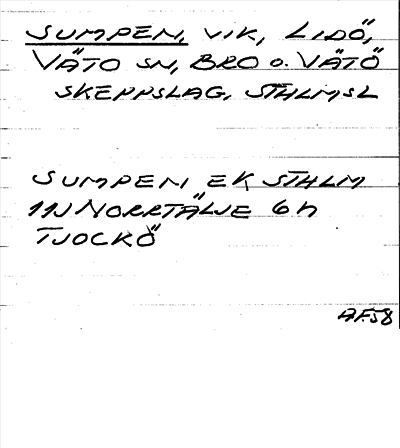 SUMPEN, VIK, LIDÖ,
VÄTÖ SN, BRO O. VÄTÖ
SKEPPSLAG, STHLMSL
SUMPEN EK STHLM
11J NORRTÄLJE 6h
TJOCKÖ
AF.58